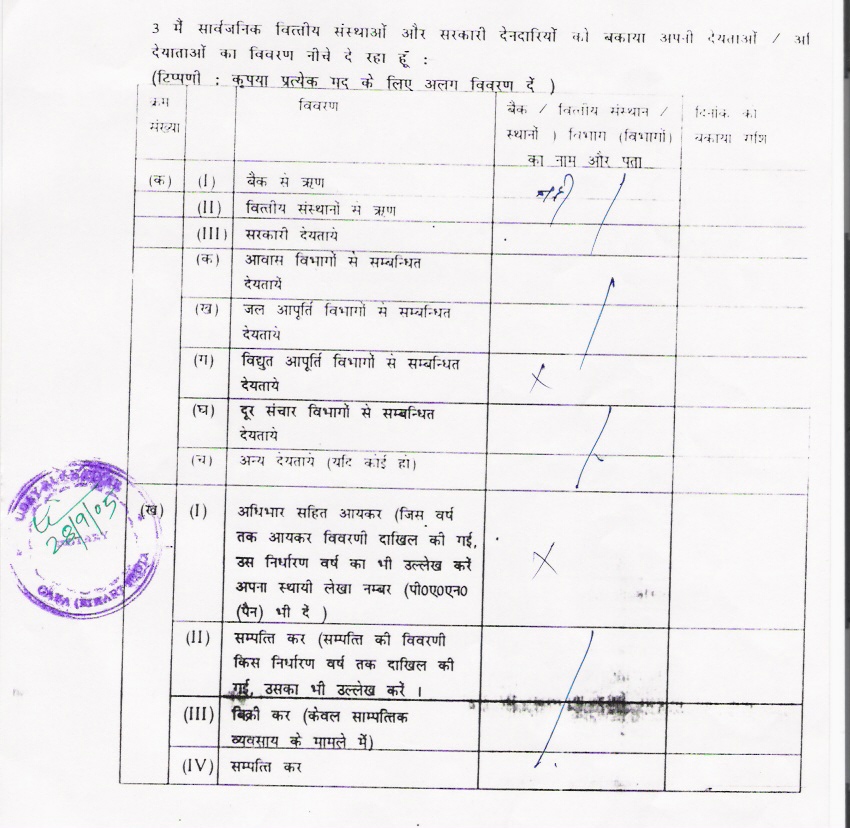 3 मैं सार्वजनिक वित्तीय संस्थाओं और सरकारी देनदारियों को बकाया अपनी देयताओं /
देयाताओं का विवरण नीचे दे रहा हूँ :
(टिप्पणी : कृपया प्रत्येक मद के लिए अलग विवरण दें )
क्रम संख्या
विवरण
बैंक / वित्तीय संस्थान /
स्थानों ) विभाग (विभागों)
का नाम और पता
दिनांक को
बकाया राशि
(क) (I) बैंक से ऋण नहीं
(II) वित्तीय संस्थानों से ऋण
(III) सरकारी देयताये
(क) आवास विभागों से सम्बन्धित
देयतायें
(ख) जल आपूर्ति विभागों से सम्बन्धित
देयताये
(ग) विद्युत आपूर्ति विभागों से सम्बन्धित
देयताये X
(घ) दूर संचार विभागों से सम्बन्धित
देयताये
(च) अन्य देयताये (यदि कोई हो)
(ख) (I) अधिभार सहित आयकर (जिस वर्ष
तक आयकर विवरणी दाखिल की गई,
उस निर्धारण वर्ष का भी उल्लेख करें X
अपना स्थायी लेखा नम्बर (पी०ए०एन०
(पैन) भी दें )
(II) सम्पत्ति कर (सम्पत्ति की विवरणी
किस निर्धारण वर्ष तक दाखिल की
गई, उसका भी उल्लेख करें ।
(III) बिक्री कर (केवल साम्पत्तिक
व्यवसाय के मामले में)
(IV) सम्पत्ति कर
28/9/05
NOTARY